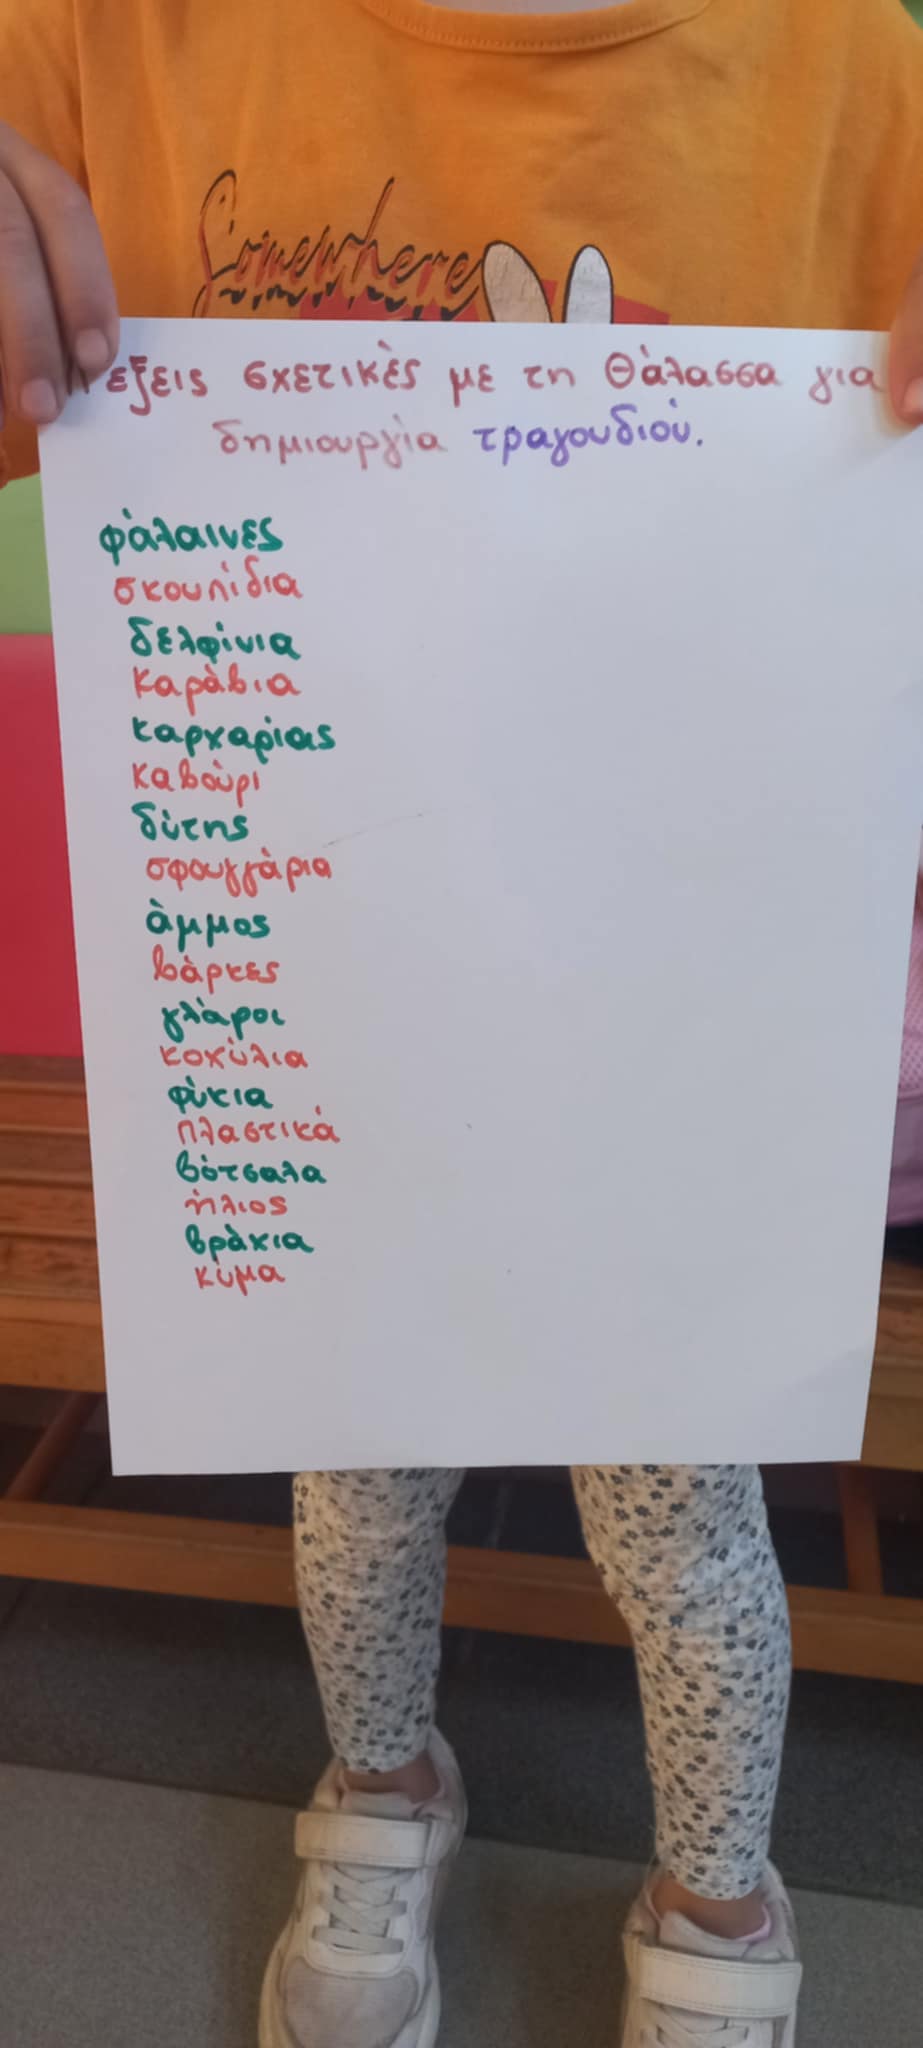 Somewhere
Λέξεις σχετικές με τη Θάλασσα για
δημιουργία τραγουδιού.
φάλαινες
σκουπίδια
δελφίνια
καράβια
καρχαρίας
καβούρι
δύτης
σφουγγάρια
άμμος
βάρκες
γλάροι
κοχύλια
φύκια
πλαστικά
βότσαλα
ήλιος
βράχια
κύμα